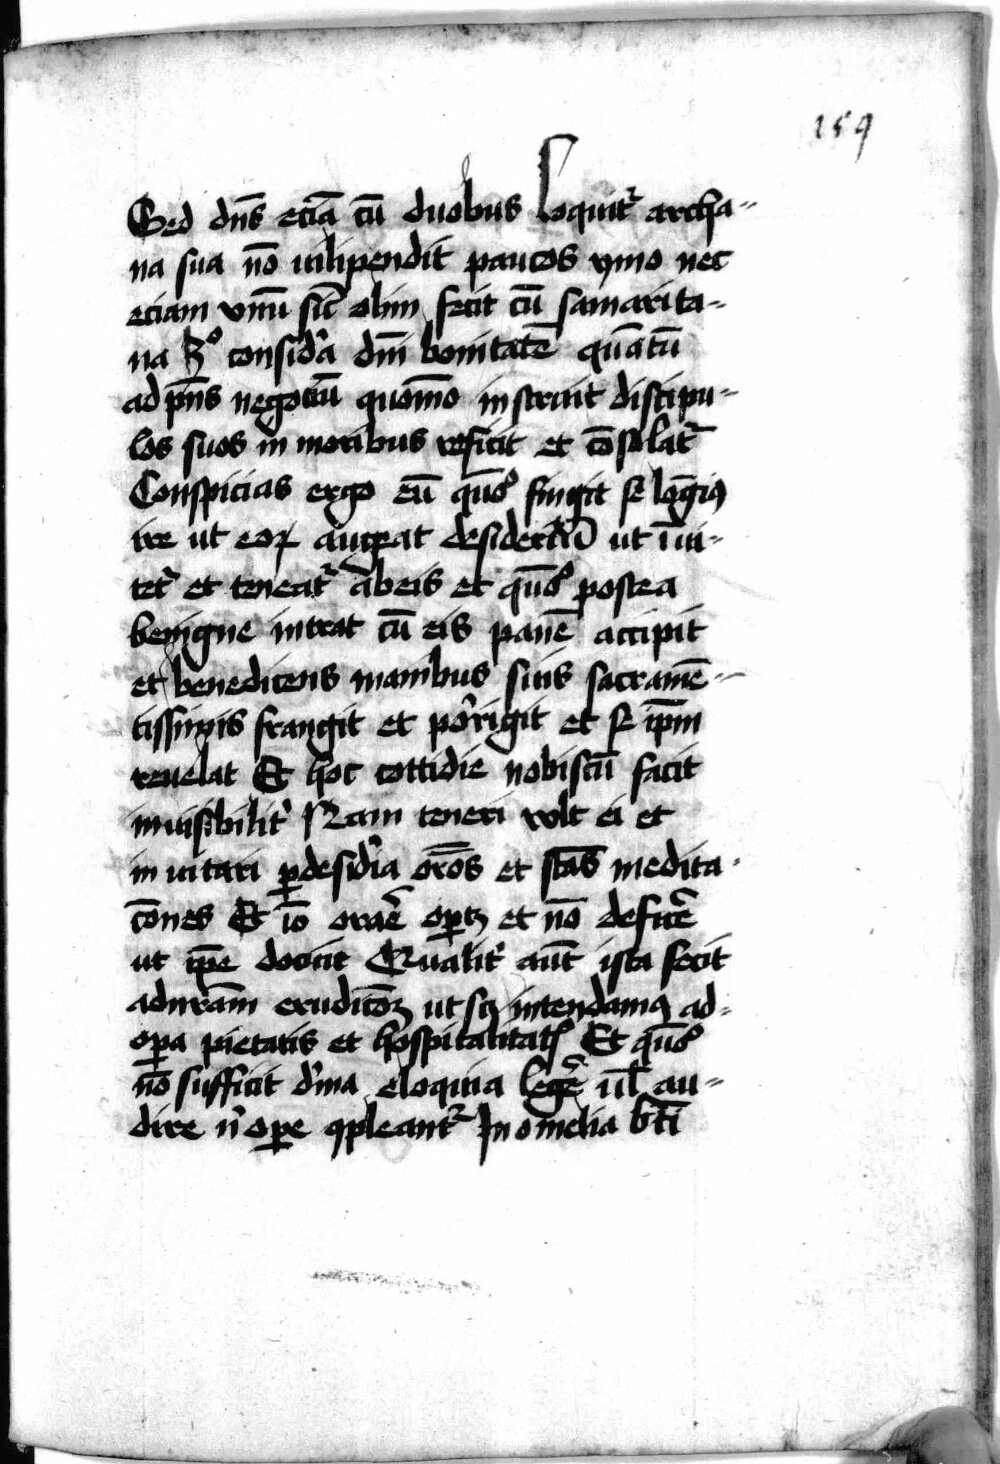 159
Sed dn̄s eciā cū duobus loquit᷑ archa-
na sua nō uilipendit paucos ymo nec
eciam vnū sic̄ olim fecit cū samarita-
na 3º consid̓a dn̄i bonitatē quātū
ad pn̄s negociū quom̄o instruit discipu-
los suos in moribus reficit et cōsolat᷑
Conspicias ergo eū quō fingit se lōgiꝰ
ire ut eoꝝ augeat desideriū ut īui-
tet᷑ et teneat᷑ ab eis et quō postea
benigne intrat cū eis panē accipit
et benedicens manibus suis sacramē-
tissimis frangit et porrigit et se ip̄m
reuelat Et hoc cottidie nobiscū facit
inuisibilit̓ Nam teneri vult ei et
inuitari ꝑ desid̓ia orōs et sc̄as medita-
cōnes Et iō oraē oꝑtꝫ et nō defic̓e
ut ip̄e docuit Qualit̓ aūt ista fecit
ad nr̄am erudicōꝫ ut scꝫ intendamꝰ ad
oꝑa pietatis et hospitalitatꝭ Et quō
nō sufficit d̓ina eloquia leg̓e ul̄ au-
dire n̓ oꝑe ꝯpleant᷑ In omelia bt̄i